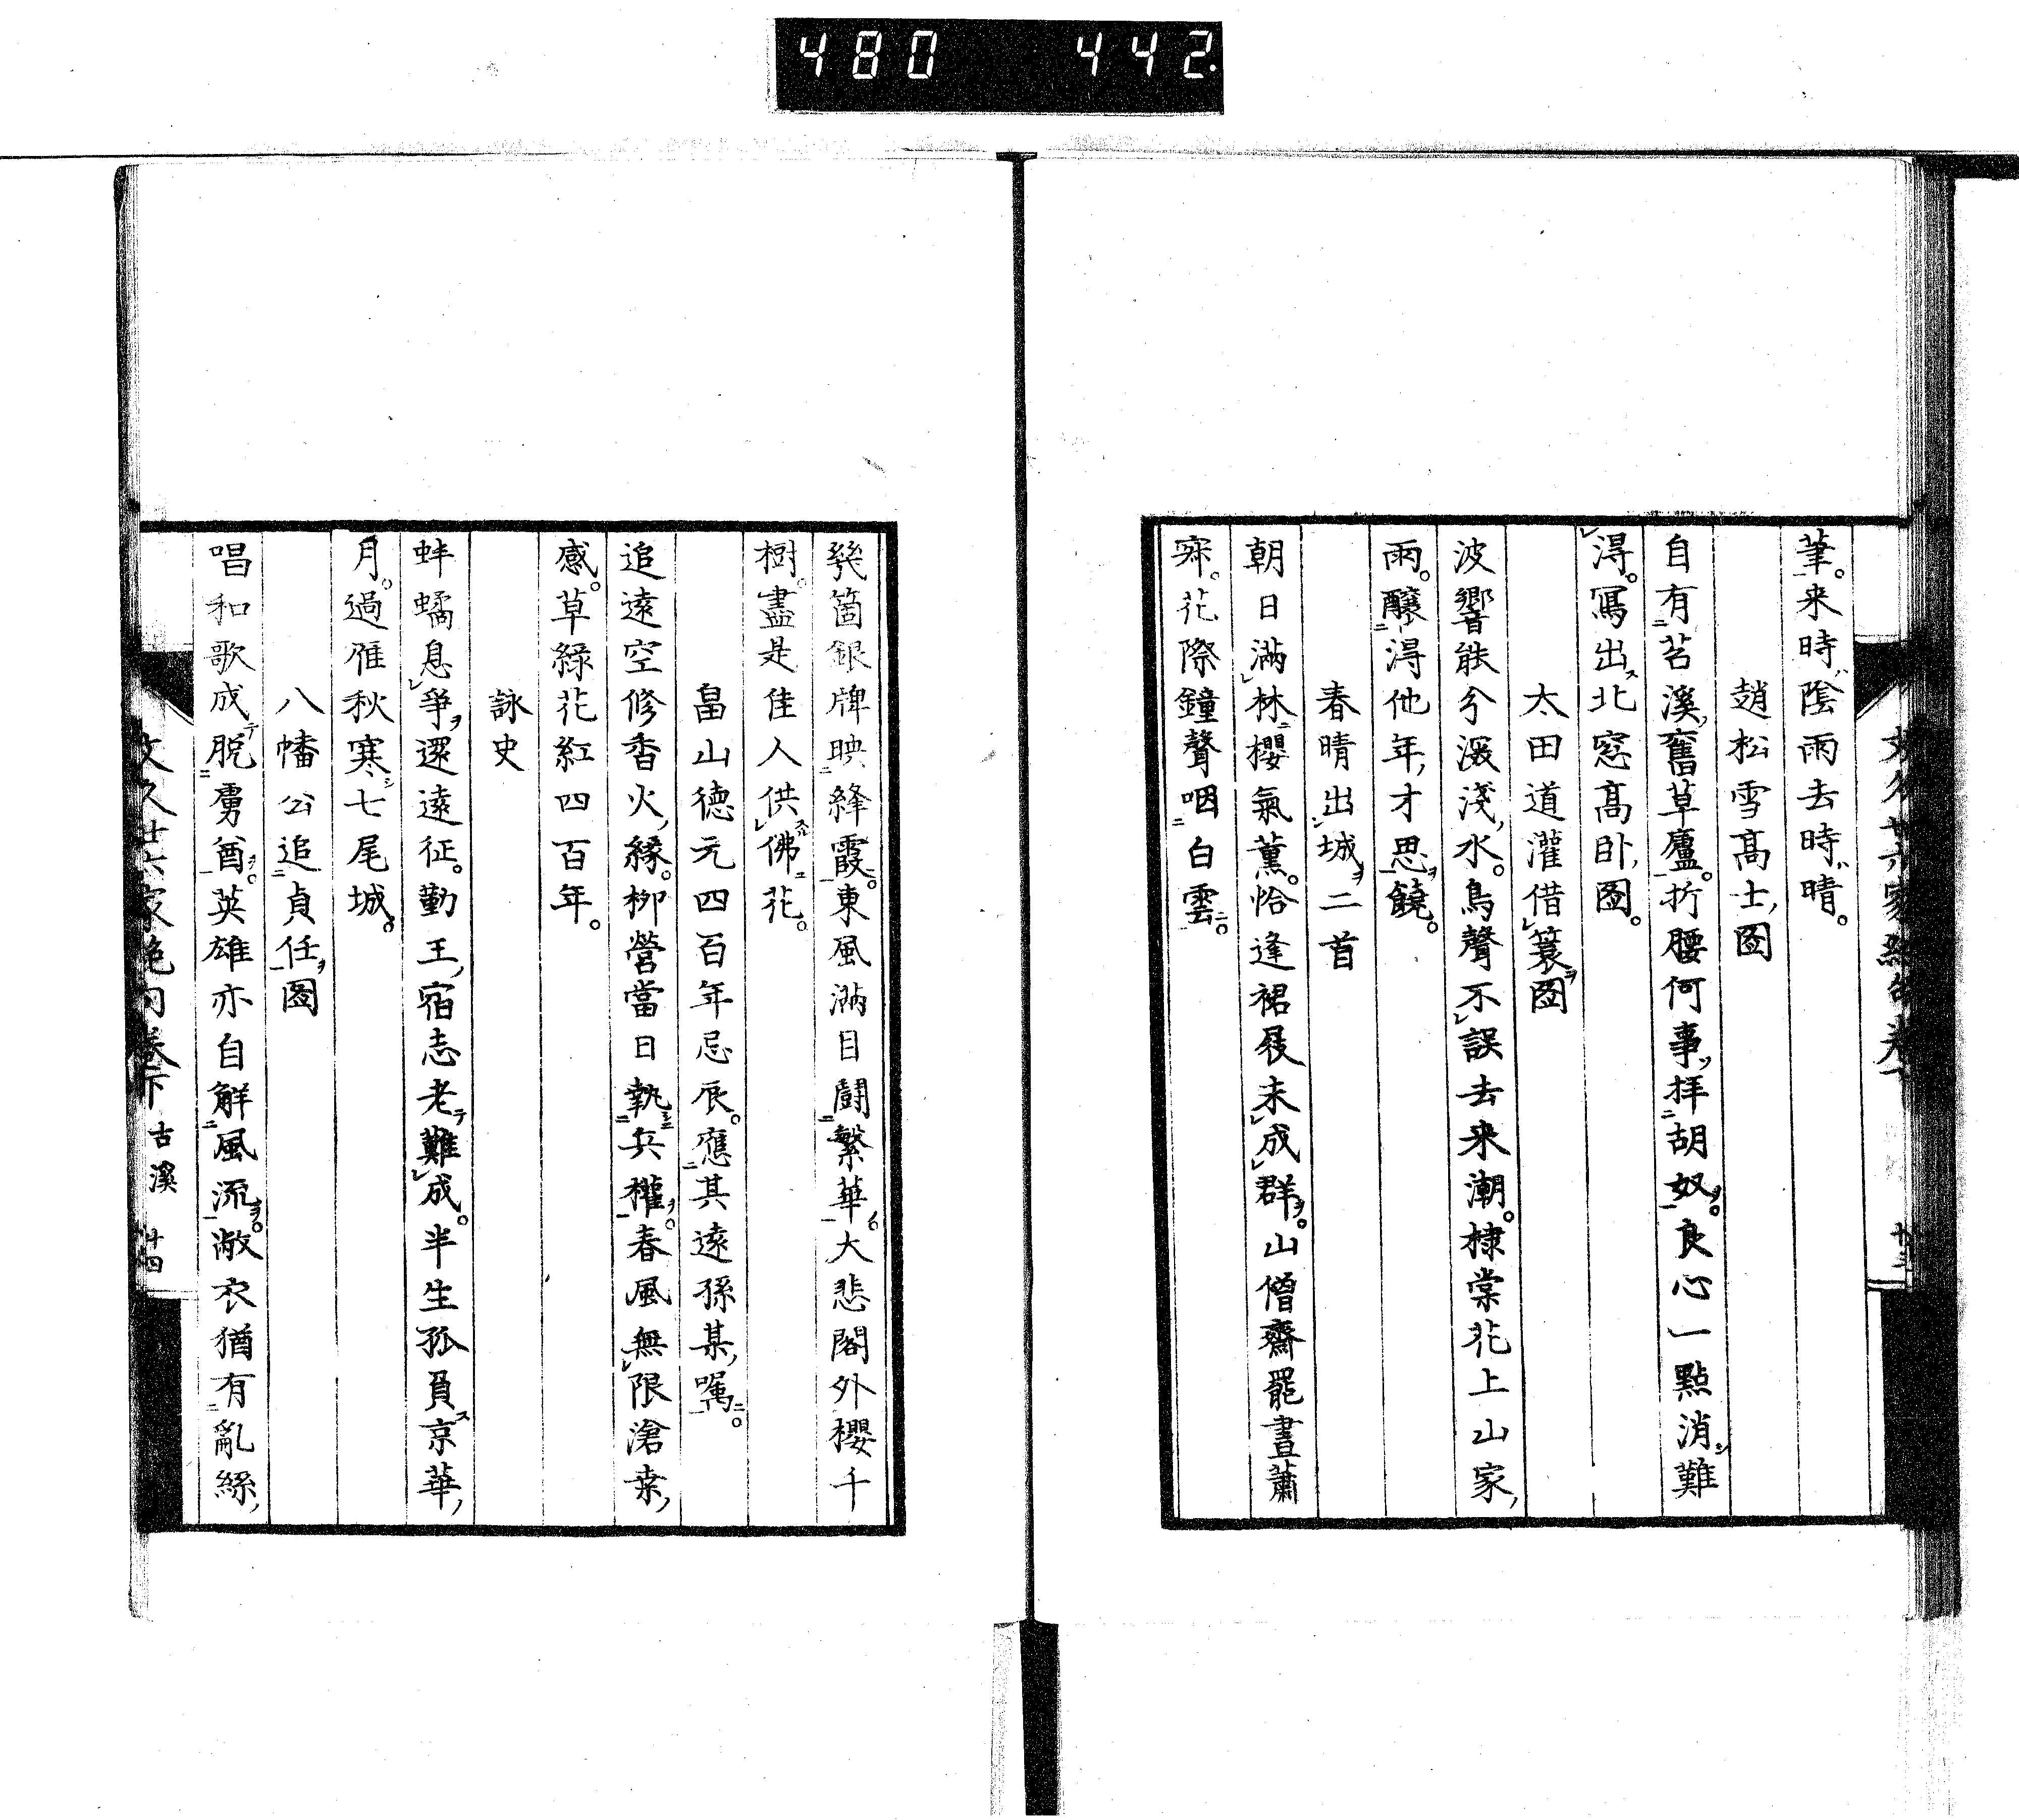 480 442.
筆。来時陰雨去時晴。
趙松雪高士圖
自有苕溪舊草廬。折腰何事拝胡奴。良心一點消難
淂。寫出北窓高卧圖。
太田道灌借簑圖
波響能分深淺水。鳥聲不誤去来潮。棣棠花上山家
雨。釀淂他年才思饒。
春晴出城二首
朝日滿林櫻氣薰。恰逢裙屐未成群。山僧齋罷晝蕭
寂。花際鐘聲咽白雲。
幾箇銀牌映絳霞。東風滿目鬪繁華。大悲閣外櫻千
樹。盡是佳人供佛花。
畠山德元四百年忌辰。應其遠孫某囑。
追遠空修香火緣。柳營當日執兵權。春風無限滄桑
感。草綠花紅四百年。
詠史
蚌蟠息爭還遠征。勤王宿志老難成。半生孤負京華
月。過雁秋寒七尾城。
八幡公追貞任圖
唱和歌成脫虜酋。英雄亦自解風流。敝衣猶有亂絲
文久廿六家絶句卷下 古溪 廿四